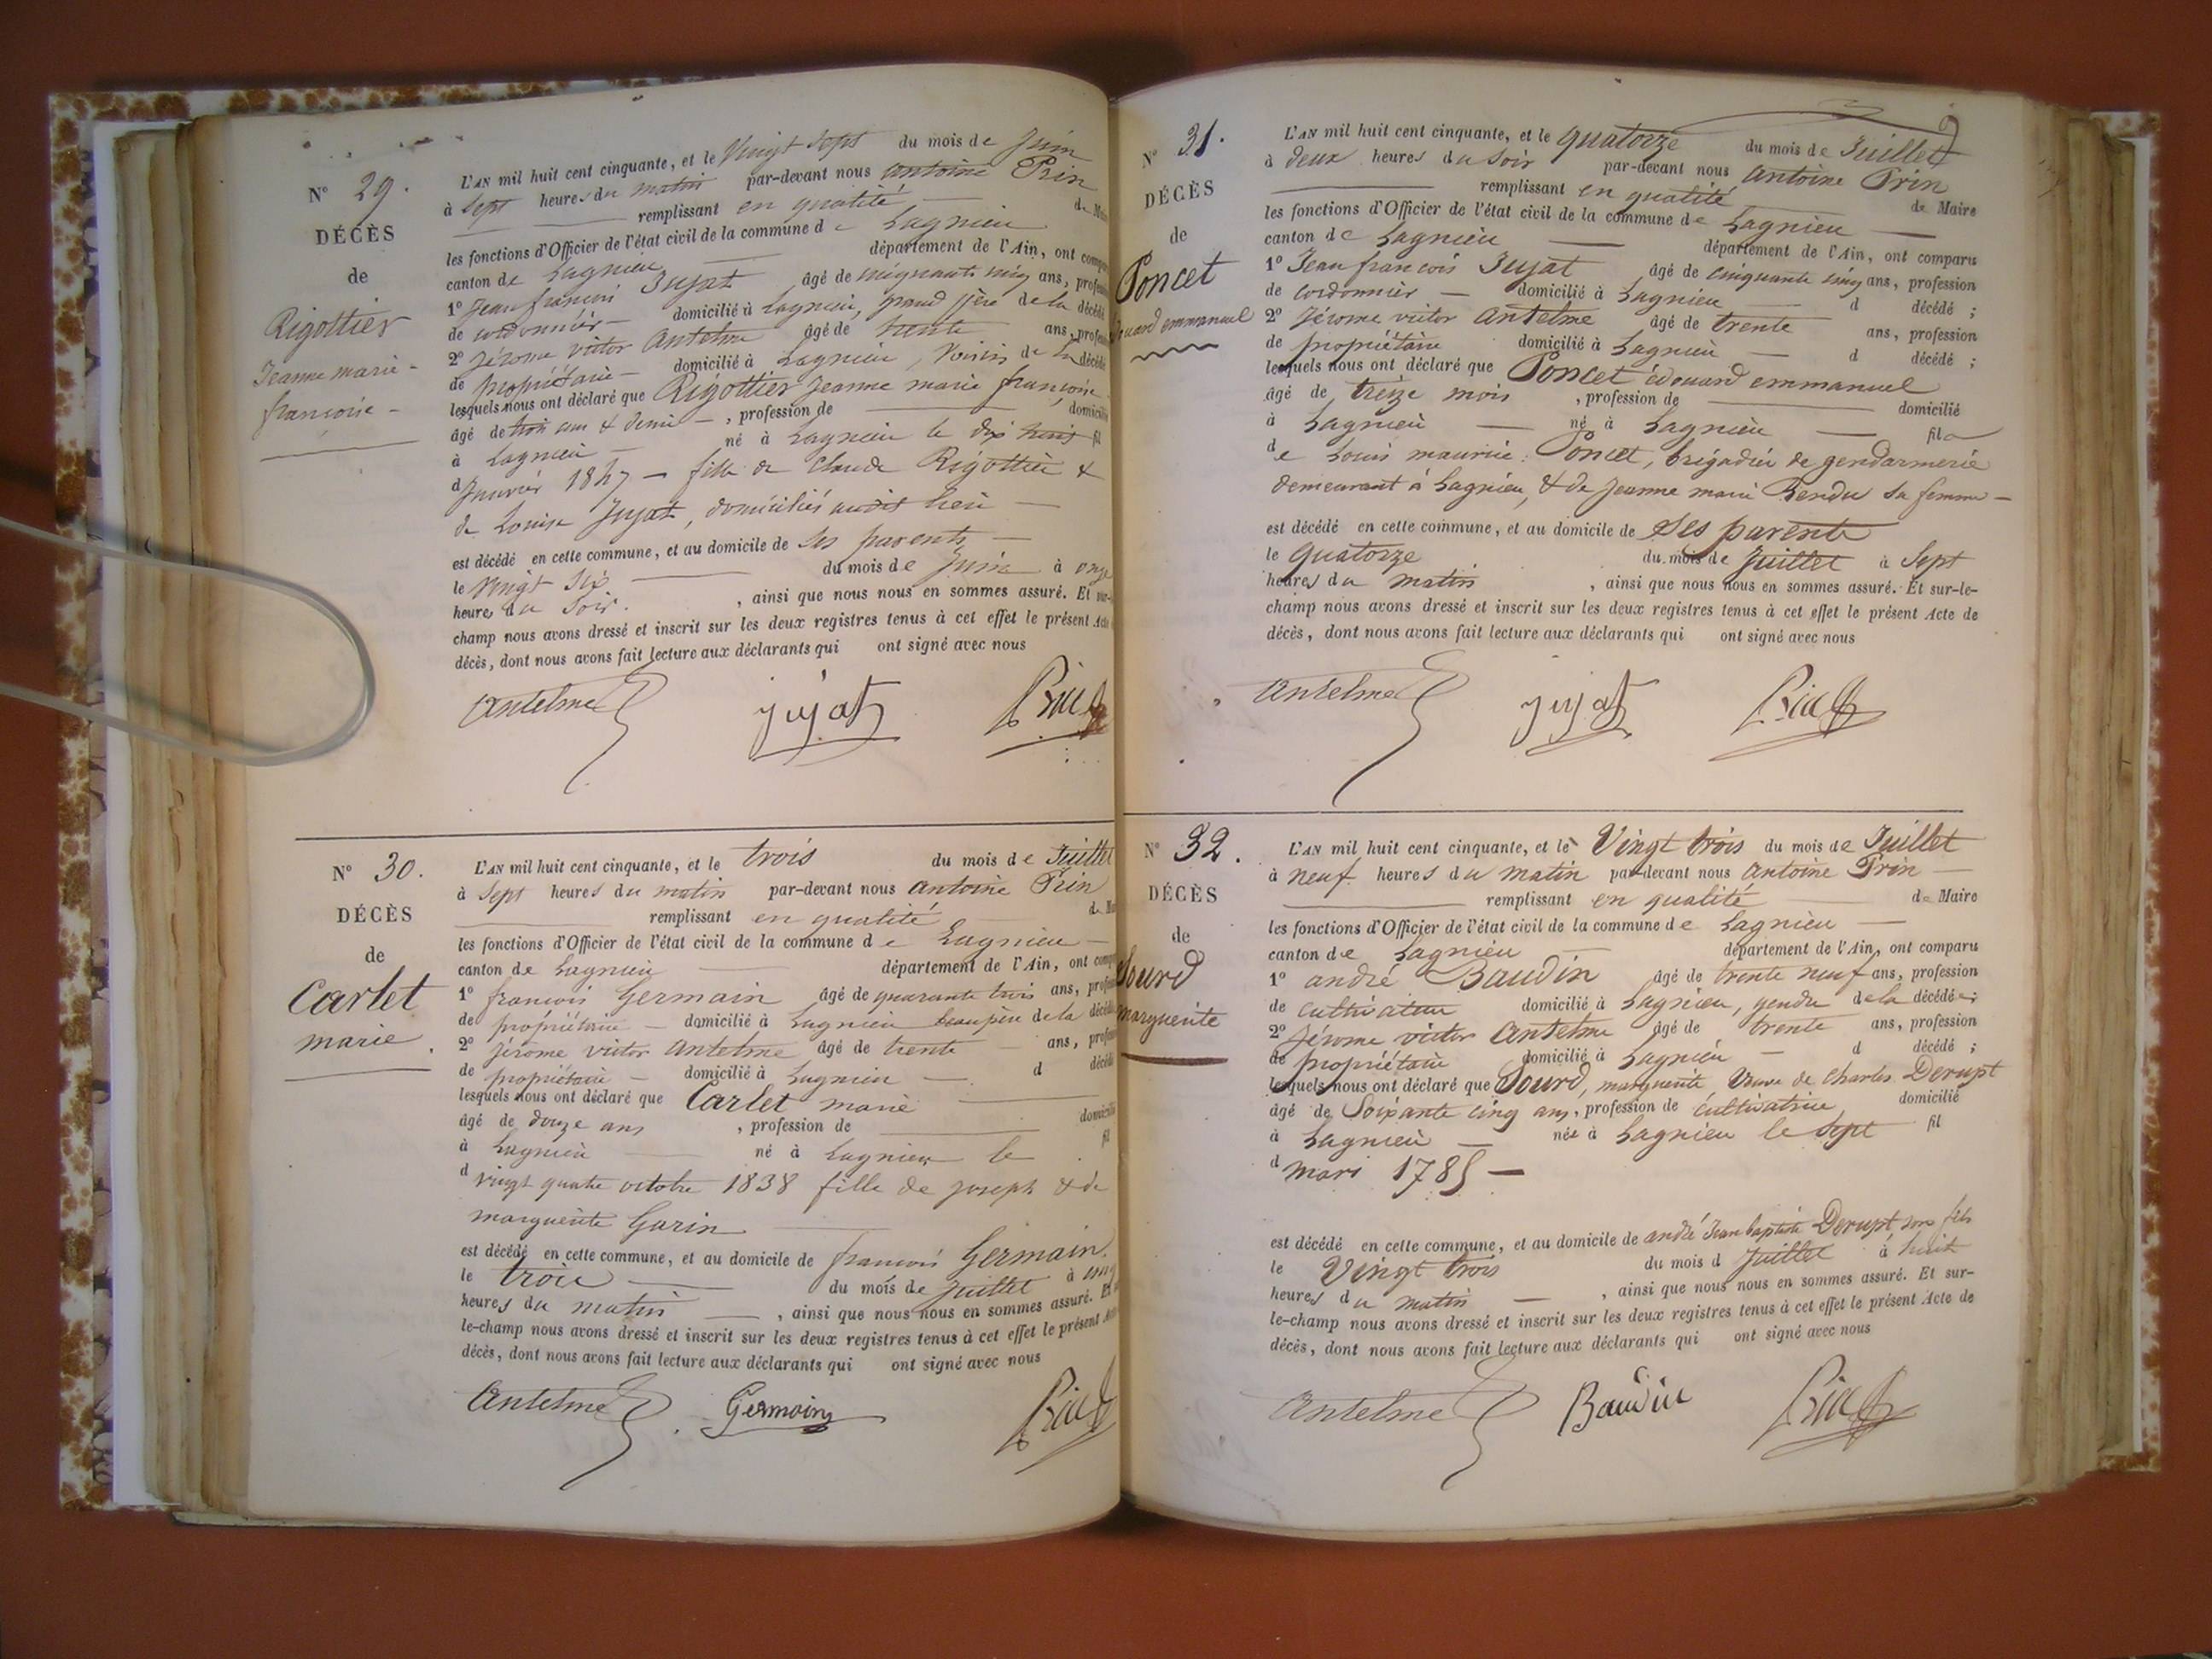 N° 29.
DÉCÈS
de
Rigottier
Jeanne marie-
françoise -
L'AN mil huit cent cinquante, et le Vingt Sept du mois de Juin
à Sept heures du matin par-devant nous antoine Prin
remplissant en qualité de
les fonctions d'Officier de l'état civil de la commune de Lagnieu
canton de Lagnieu département de l'Ain, ont
1° Jean françois Jujat âgé de cinquante cinq ans,
de cordonnier - domicilié à Lagnieu, grand père de la
2° Jérome victor Antelme âgé de trente ans,
de propriétaire - domicilié à Lagnieu, voisin de la
lesquels nous ont déclaré que Rigottier Jeanne marie françoise
âgé de trois ans & demi -, profession de
à Lagnieu né à Lagnieu le dix huit fil
d Janvier 1847 - fille de Claude Rigottier &
de Louise Jujat, domiciliés audit lieu -
est décédé en cette commune, et au domicile de ses parents -
le vingt six du mois de Juin à onze
heures du Soir. , ainsi que nous nous en sommes assuré. Et
champ nous avons dressé et inscrit sur les deux registres tenus à cet effet le présent Acte
décès, dont nous avons fait lecture aux déclarants qui ont signé avec nous
Antelme Jujat Prin
N° 30.
DÉCÈS
de
Carlet
marie.
L'AN mil huit cent cinquante, et le trois du mois de Juillet
à Sept heures du matin par-devant nous antoine Prin
remplissant en qualité de
les fonctions d'Officier de l'état civil de la commune de Lagnieu -
canton de Lagnieu département de l'Ain, ont
1° françois Germain âgé de quarante trois ans,
de propriétaire - domicilié à Lagnieu beaupère de la
2° Jérome victor Antelme âgé de trente ans,
de propriétaire - domicilié à Lagnieu - d
lesquels nous ont déclaré que Carlet marie
âgé de douze ans , profession de
à Lagnieu né à Lagnieu le fil
d vingt quatre octobre 1838 fille de joseph & de
marguerite Garin
est décédé en cette commune, et au domicile de françois Germain.
le trois du mois de Juillet à cinq
heures du matin , ainsi que nous nous en sommes assuré. Et
le-champ nous avons dressé et inscrit sur les deux registres tenus à cet effet le présent
décès, dont nous avons fait lecture aux déclarants qui ont signé avec nous
Antelme Germain Prin
N° 31.
DÉCÈS
de
Poncet
emmanuel
L'AN mil huit cent cinquante, et le quatorze du mois de Juillet
à deux heures du Soir par-devant nous Antoine Prin
remplissant en qualité de Maire
les fonctions d'Officier de l'état civil de la commune de Lagnieu -
canton de Lagnieu - département de l'Ain, ont comparu
1° Jean françois Jujat âgé de cinquante cinq ans, profession
de cordonnier - domicilié à Lagnieu d décédé ;
2° Jérome victor Antelme âgé de trente ans, profession
de propriétaire domicilié à Lagnieu - d décédé ;
lesquels nous ont déclaré que Poncet édouard emmanuel
âgé de treize mois , profession de domicilié
à Lagnieu - né à Lagnieu - fils
de Louis maurice Poncet, brigadier de gendarmerie
demeurant à Lagnieu, & de Jeanne marie Rendu sa femme -
est décédé en cette commune, et au domicile de Ses parents
le quatorze du mois de Juillet à Sept
heures du matin , ainsi que nous nous en sommes assuré. Et sur-le-
champ nous avons dressé et inscrit sur les deux registres tenus à cet effet le présent Acte de
décès, dont nous avons fait lecture aux déclarants qui ont signé avec nous
Antelme Jujat Prin
N° 32.
DÉCÈS
de
Sourd
marguerite
L'AN mil huit cent cinquante, et le Vingt trois du mois de Juillet
à neuf heures du matin par-devant nous Antoine Prin -
remplissant en qualité de Maire
les fonctions d'Officier de l'état civil de la commune de Lagnieu -
canton de Lagnieu - département de l'Ain, ont comparu
1° andré Baudin âgé de trente neuf ans, profession
de cultivateur domicilié à Lagnieu, gendre de la décédée ;
2° Jérome victor Antelme âgé de trente ans, profession
de propriétaire domicilié à Lagnieu - d décédé ;
lesquels nous ont déclaré que Sourd, marguerite Veuve de Charles Derupt
âgé de Soixante cinq ans, profession de cultivatrice, domicilié
à Lagnieu - née à Lagnieu le Sept fil
d mars 1785 -
est décédé en cette commune, et au domicile de andré Jean baptiste Derupt, son fils
le Vingt trois du mois d Juillet à huit
heures du matin - , ainsi que nous nous en sommes assuré. Et sur-
le-champ nous avons dressé et inscrit sur les deux registres tenus à cet effet le présent Acte de
décès, dont nous avons fait lecture aux déclarants qui ont signé avec nous
Antelme Baudin Prin